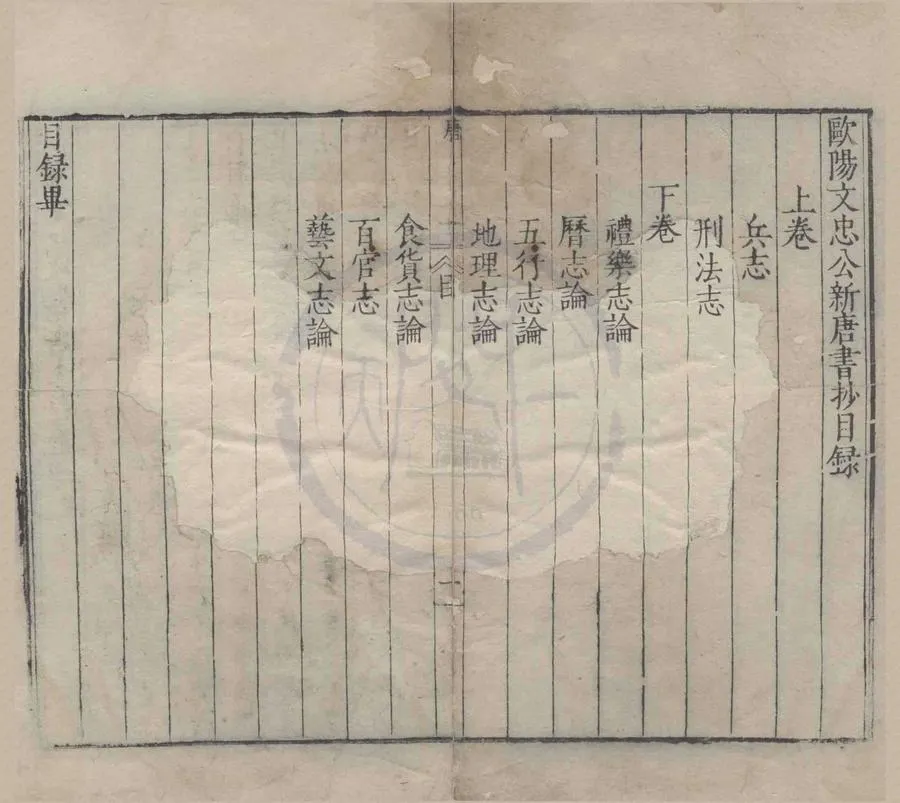 歐陽文忠公新唐書抄目録
上卷
兵志
刑法志
下卷
禮樂志論
曆志論
五行志論
地理志論
唐
目
一
食貨志論
百官志
藝文志論
目録畢